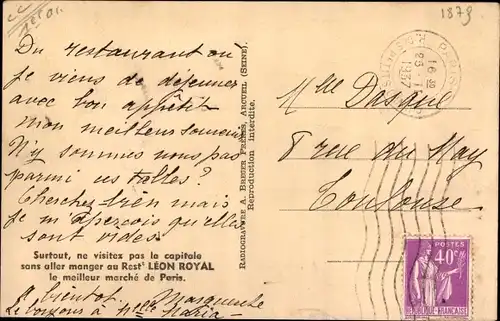 1879
Du restaurant où
je viens de déjeuner
avec bon appétit
mon meilleur souvenir
N'y sommes nous pas
parmi ces tables?
Cherchez bien mais
je m'aperçois qu'elles
sont vides.
Surtout, ne visitez pas la capitale
sans aller manger au Restt LÉON ROYAL
le meilleur marché de Paris.
A bientôt. Marguerite
RADIOGRAVURE A. BREGER FRÈRES, ARCUEIL (SEINE).
Reproduction interdite.
PARIS
16 30
1937
Mlle Dasque
8 rue du May
Toulouse
POSTES
40c
RÉPUBLIQUE FRANÇAISE